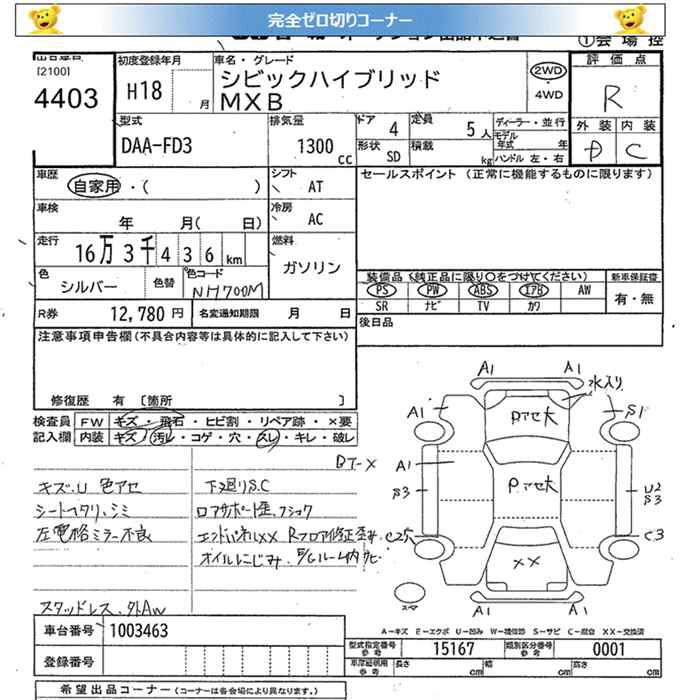 完全ゼロ切りコーナー
①会場控
出品番号
[2100]
4403
初度登録年月
H18
月
車名・グレード
シビックハイブリッド
MXB
2WD
・4WD
評価点
R
外装 内装
D C
型式
DAA-FD3
排気量
1300
cc
ドア 4
定員 5人
形状 SD
積載 kg
ディーラー・並行
モデル年式 年
ハンドル 左・右
車歴
自家用・( )
シフト
AT
セールスポイント (正常に機能するものに限ります)
車検
年 月( 日)
冷房
AC
走行
16万3千436km
燃料
ガソリン
色
シルバー
色替
色コード
NH700M
装備品 (純正品に限り○をつけてください)
PS PW ABS エアB AW
SR ナビ TV カワ
新車保証書
有・無
R券 12,780円
名変通知期限 月 日
後日品
注意事項申告欄 (不具合内容等は具体的に記入して下さい)
修復歴 有 [箇所 ]
検査員
記入欄
FW キズ・飛石・ヒビ割・リペア跡・×要
内装 キズ・汚レ・コゲ・穴・スレ・キレ・破レ
キズ、U 色アセ
シートヘタリ、シミ
左電格ミラー不良
スタッドレス、外AW
下廻りS.C
ロアサポート歪、フショク
エンドパネルXX Rフロア修正歪み
オイルにじみ、
A1
A1
水入り
A1
S1
Pアセ大
A1
S3
Pアセ大
U2
S3
C25
C3
XX
A1
A1
スマ
A-キズ E-エクボ U-凹み W-補修跡 S-サビ C-腐食 XX-交換済
車台番号 1003463
登録番号
型式指定番号
参考
15167
類別区分番号
参考
0001
長さ cm
幅 cm
高さ cm
希望出品コーナー (コーナーは各会場により異なります。)